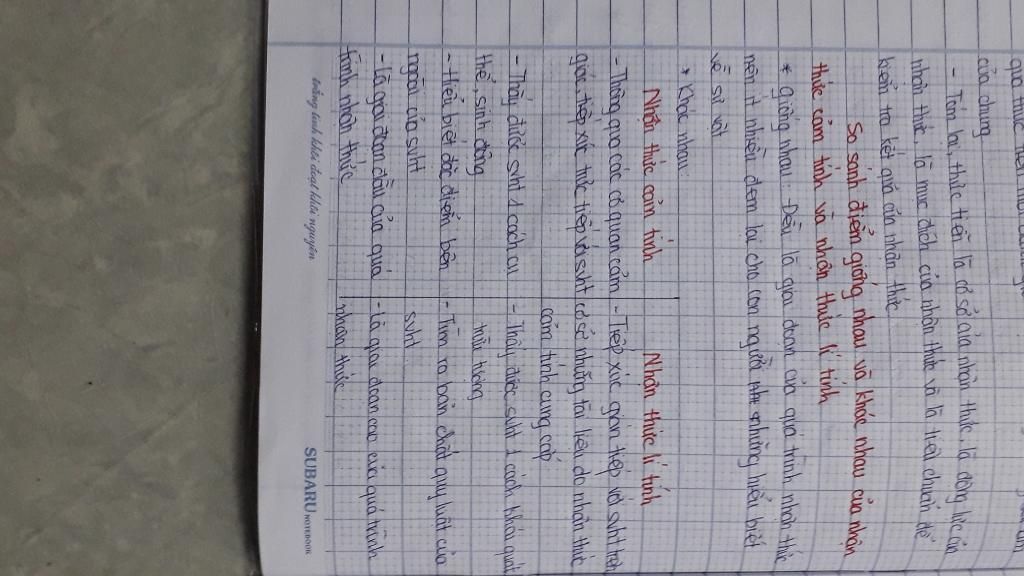 của chúng
- Tóm lại, thực tiễn là cơ sở của nhận thức, là động lực của
nhận thức, là mục đích của nhận thức và là tiêu chuẩn để
kiểm tra kết quả của nhận thức
So sánh điểm giống nhau và khác nhau của nhận
thức cảm tính và nhận thức lí tính
* Giống nhau: Đều là giai đoạn của quá trình nhận thức
nên ít nhiều đem lại cho con người những hiểu biết
về sự vật
* Khác nhau:
Nhận thức cảm tính
- Thông qua các cơ quan cảm
giác, tiếp xúc trực tiếp với svht
- Thấy được svht 1 cách cụ
thể, sinh động
- Hiểu biết đặc điểm bên
ngoài của svht
- Là giai đoạn đầu của quá
trình nhận thức
Nhận thức lí tính
- Tiếp xúc gián tiếp với svht trên
cơ sở những tài liệu do nhận thức
cảm tính cung cấp
- Thấy được svht 1 cách khái quát
trừu tượng
- Tìm ra bản chất quy luật của
svht
- Là giai đoạn cao của quá trình
nhận thức
SUBARU NOTEBOOK